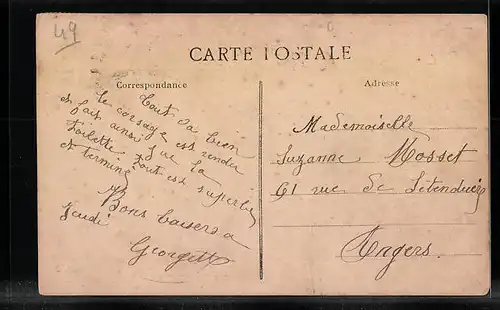 49
CARTE POSTALE
Correspondance
Tout va bien
le corsage est rendu
et fait ainsi que la
toilette tout est superbe
et terminé
Bons baisers à
Jeudi
Georgette
Adresse
Mademoiselle
Suzanne Mosset
61 rue de Létenduère
Angers.